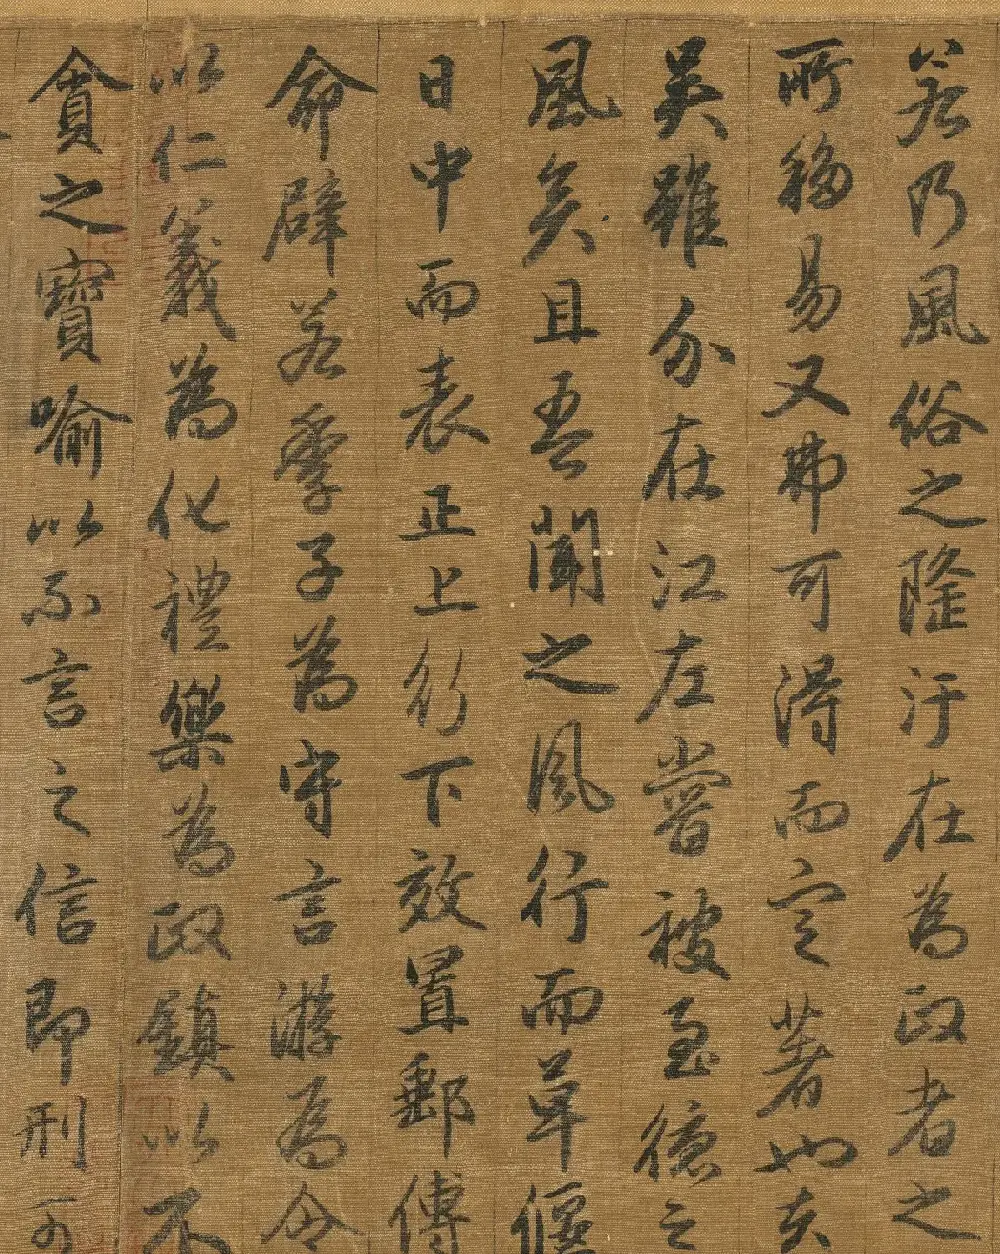 若乃風俗之隆汙在為政者之
所移易又弗可得而定著也夫
吳雖分在江左嘗被至德之
風矣且吾聞之風行而草偃
日中而表正上行下效置郵傳
命辟若季子為守言游為令
以仁義為化禮樂為政鎮以不
貪之寶喻以不言之信即刑可